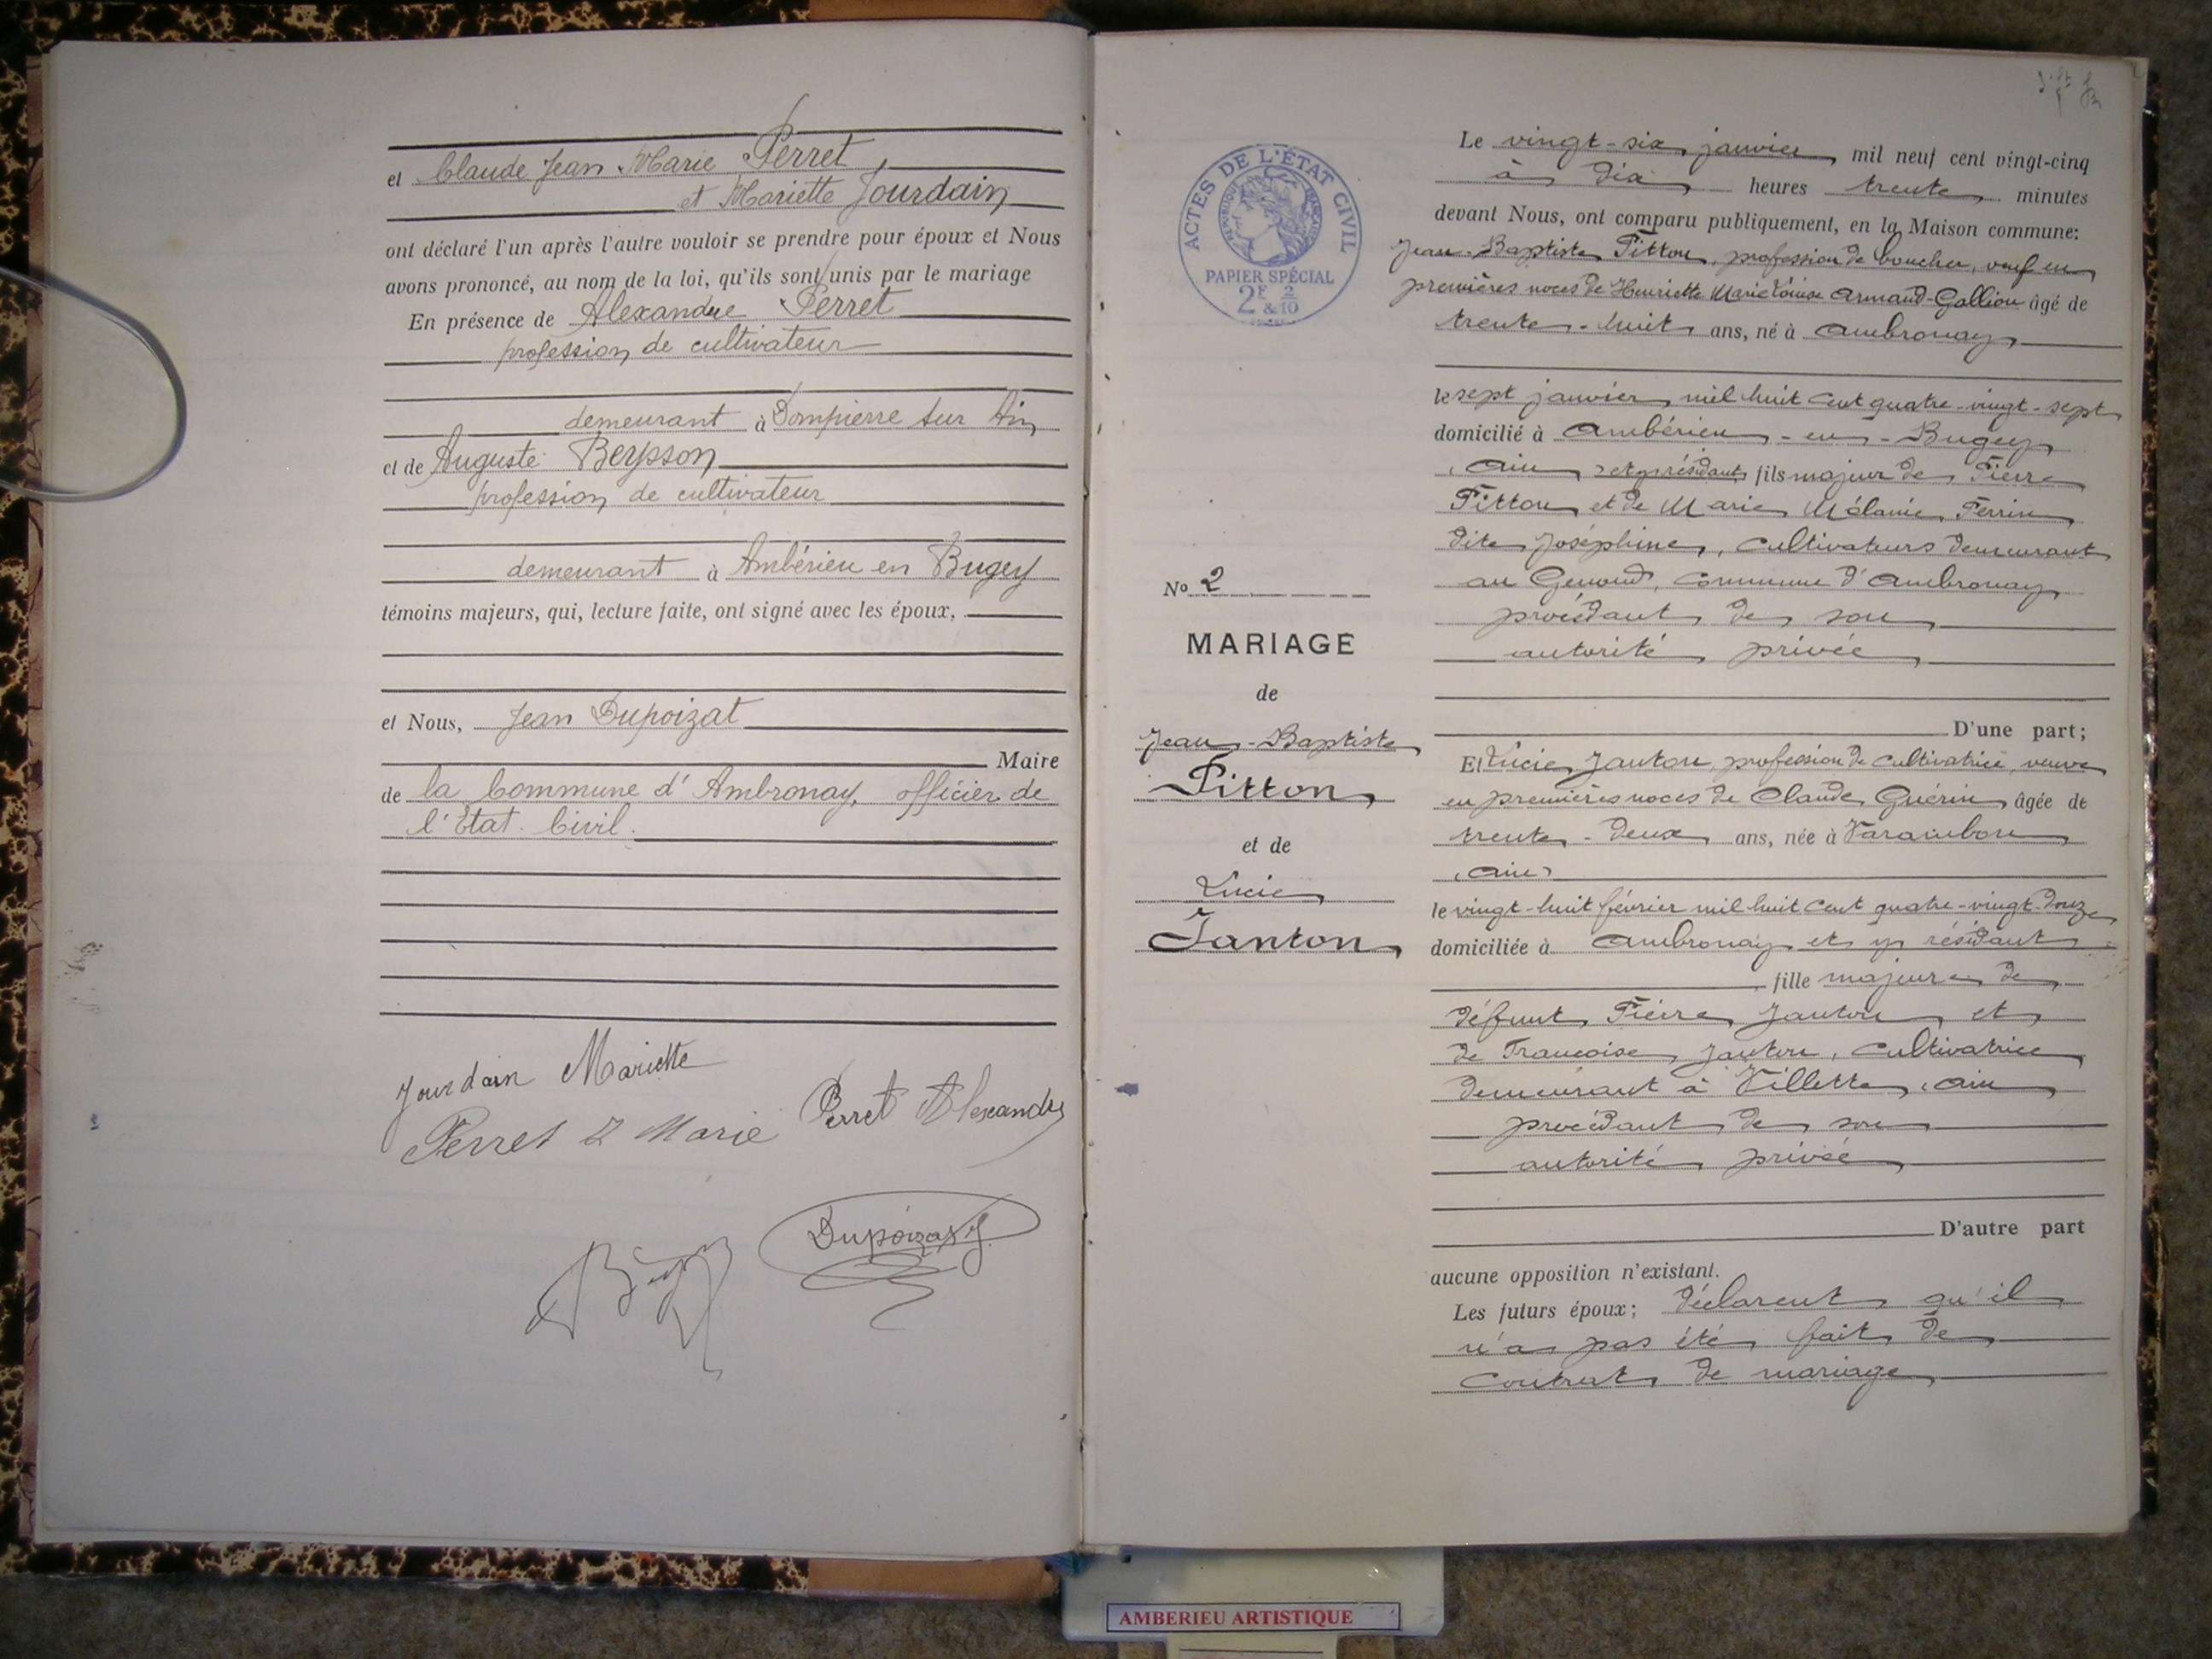 et Claude Jean Marie Perret,
et Mariette Jourdain
ont déclaré l'un après l'autre vouloir se prendre pour époux et Nous
avons prononcé, au nom de la loi, qu'ils sont unis par le mariage
En présence de Alexandre Perret
profession de cultivateur
demeurant à Dompierre sur Ain
et de Auguste Beysson
profession de cultivateur
demeurant à Ambérieu en Bugey
témoins majeurs, qui, lecture faite, ont signé avec les époux,
et Nous, Jean Dupoizat
Maire
de la Commune d'Ambronay, officier de
l'Etat Civil.
Jourdain Mariette
Perret J Marie Perret Alexandre
Dupoizat J
ACTES DE L'ÉTAT CIVIL
RÉPUBLIQUE FRANÇAISE
PAPIER SPÉCIAL
2F & 2/10
No 2
MARIAGE
de
Jean-Baptiste
Pitton
et de
Lucie
Janton
Le vingt-six janvier mil neuf cent vingt-cinq
à dix heures trente minutes
devant Nous, ont comparu publiquement, en la Maison commune:
Jean-Baptiste Pitton, profession de boucher, veuf en
premières noces de Henriette Marie Louise Armand-Gallion âgé de
trente-huit ans, né à Ambronay
le sept janvier mil huit cent quatre-vingt-sept
domicilié à Ambérieu-en-Bugey
(Ain) et y résidant fils majeur de Pierre
Pitton et de Marie Mélanie Perrin
dite Joséphine, cultivateurs demeurant
au Genoud, commune d'Ambronay
procédant de son
autorité privée
D'une part;
Et Lucie Janton, profession de cultivatrice, veuve
en premières noces de Claude Guérin âgée de
trente-deux ans, née à Varambon
(Ain)
le vingt-huit février mil huit cent quatre-vingt-douze
domiciliée à Ambronay et y résidant
fille majeure de
défunt Pierre Janton et
de Françoise Janton, cultivatrice
demeurant à Villette, Ain
procédant de son
autorité privée
D'autre part
aucune opposition n'existant.
Les futurs époux; déclarent qu'il
n'a pas été fait de
contrat de mariage
AMBERIEU ARTISTIQUE